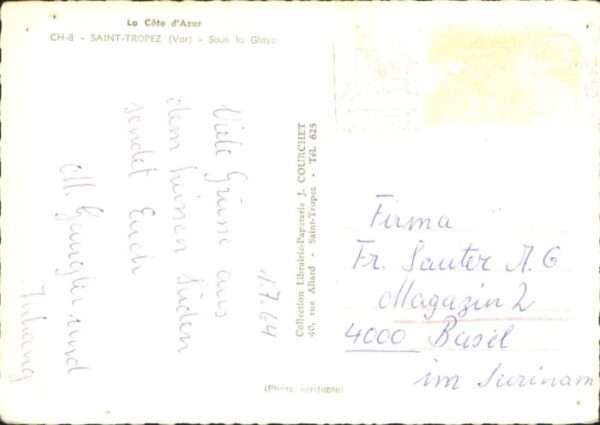 La Côte d'Azur
CH-8 - SAINT-TROPEZ (Var) - Sous la Glaye
1.7.64
Viele Grüsse aus
dem heissen Süden
sendet Euch
M. Gangler und
Collection Librairie-Papeterie J. COURCHET
40, rue Allard - Saint-Tropez - Tél. 625
Firma
Fr. Sauter A.G
Magazin 2
4000 Basel
im Surinam
(Photo véritable)